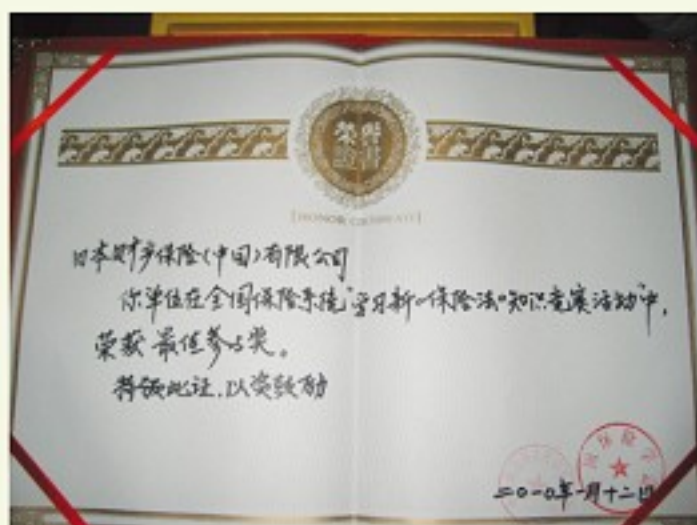 榮譽
證書
[HONOR CERTIFICATE]
日本财产保险(中国)有限公司
你单位在全国保险系统“学习新《保险法》知识竞赛活动”中,
荣获 最佳参与奖。
特颁此证,以资鼓励
二〇一〇年一月十二日